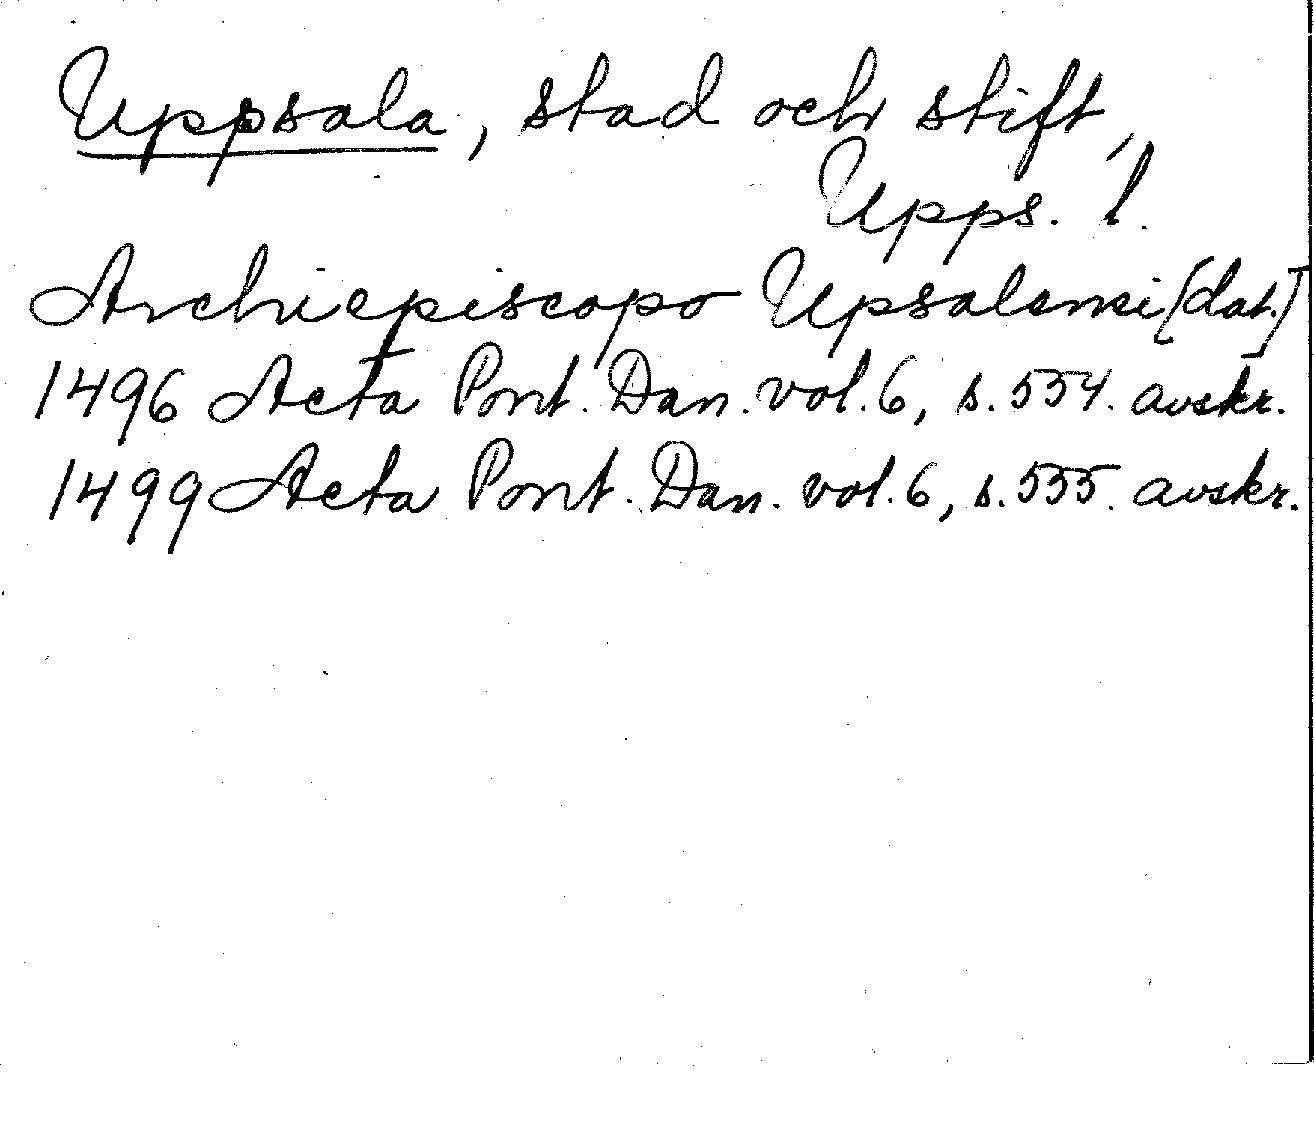 Uppsala, stad och stift,
Upps. l.
Archiepiscopo Upsalensi [dat.]
1496 Acta Pont. Dan. vol. 6, s. 554. avskr.
1499 Acta Pont. Dan. vol. 6, s. 555. avskr.